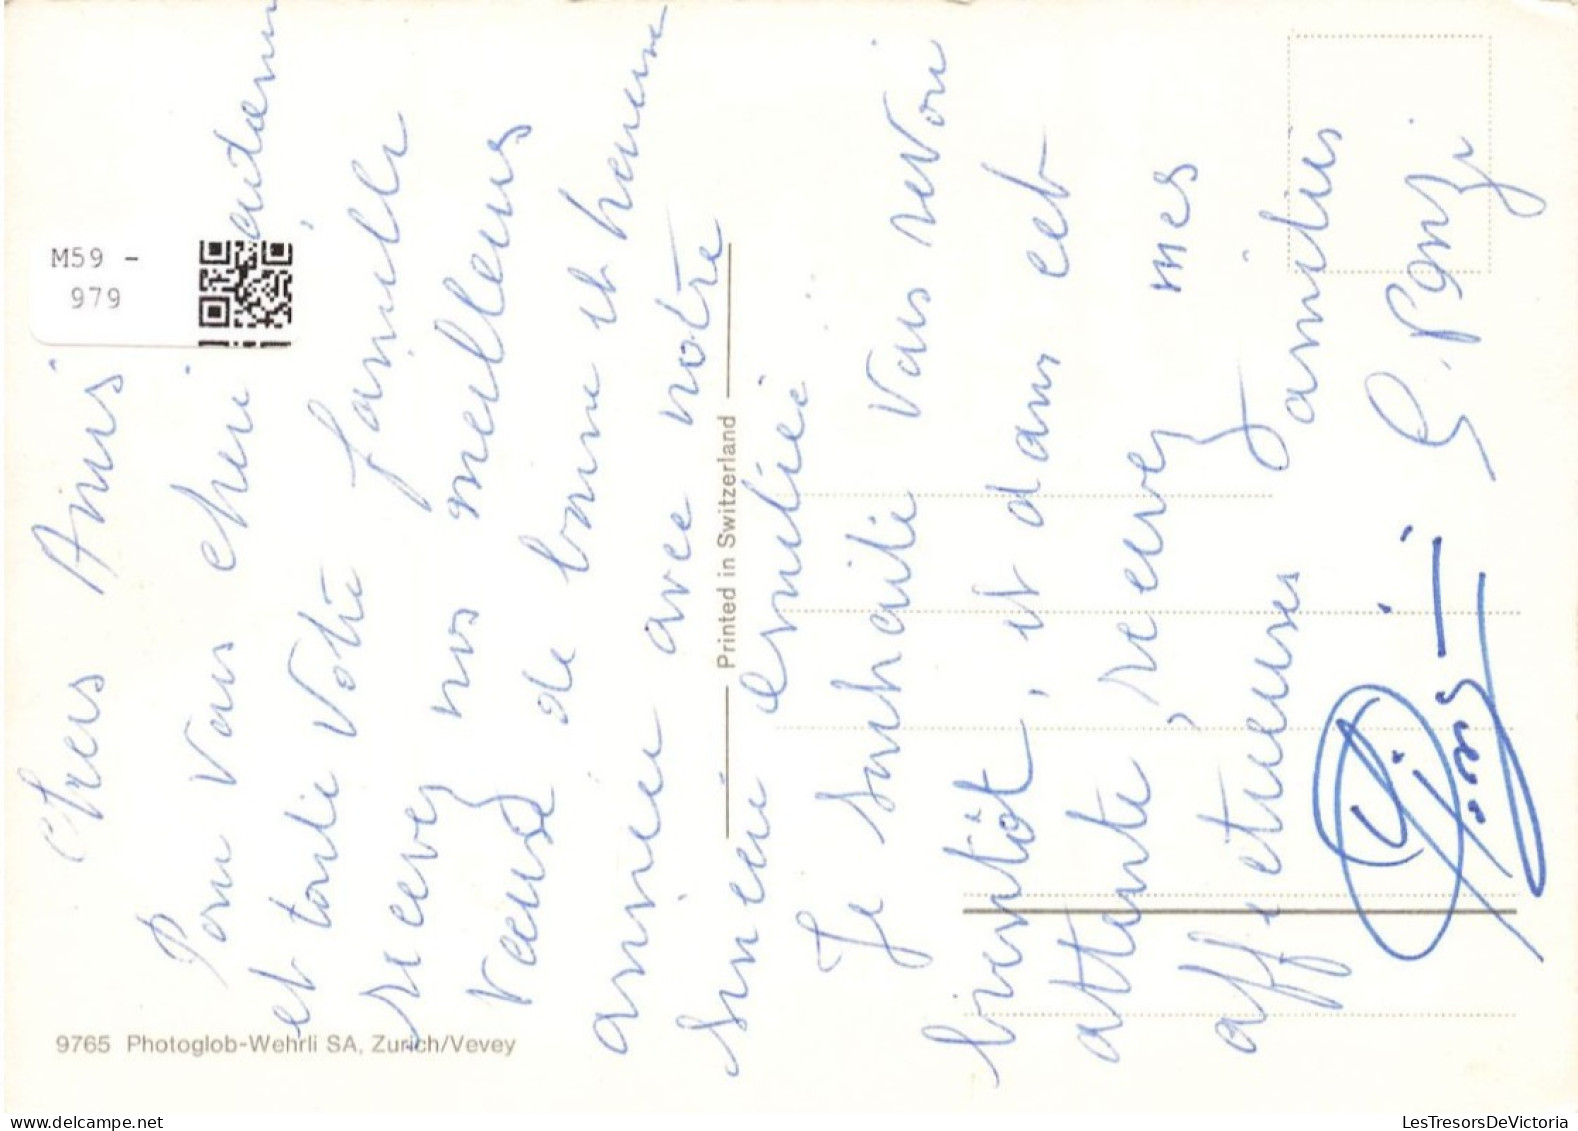 Chers Amis
Pour Vous cheri
et toute Votre famille
recevez nos meilleurs
Veeuse de bonne et heureuse
année avec notre
sincere emitiée
Je suhaite Vous revoi
bientôt, et dans cet
attente, recevez mes
affetueuses amities
G. Ponzi
M59 -
979
Printed in Switzerland
9765 Photoglob-Wehrli SA, Zurich/Vevey
LesTresorsDeVictoria
www.delcampe.net